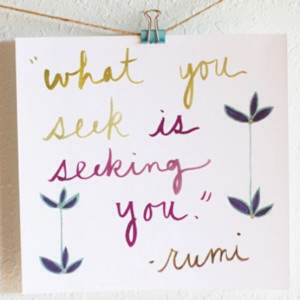 "what you
seek is
seeking
you."
-rumi